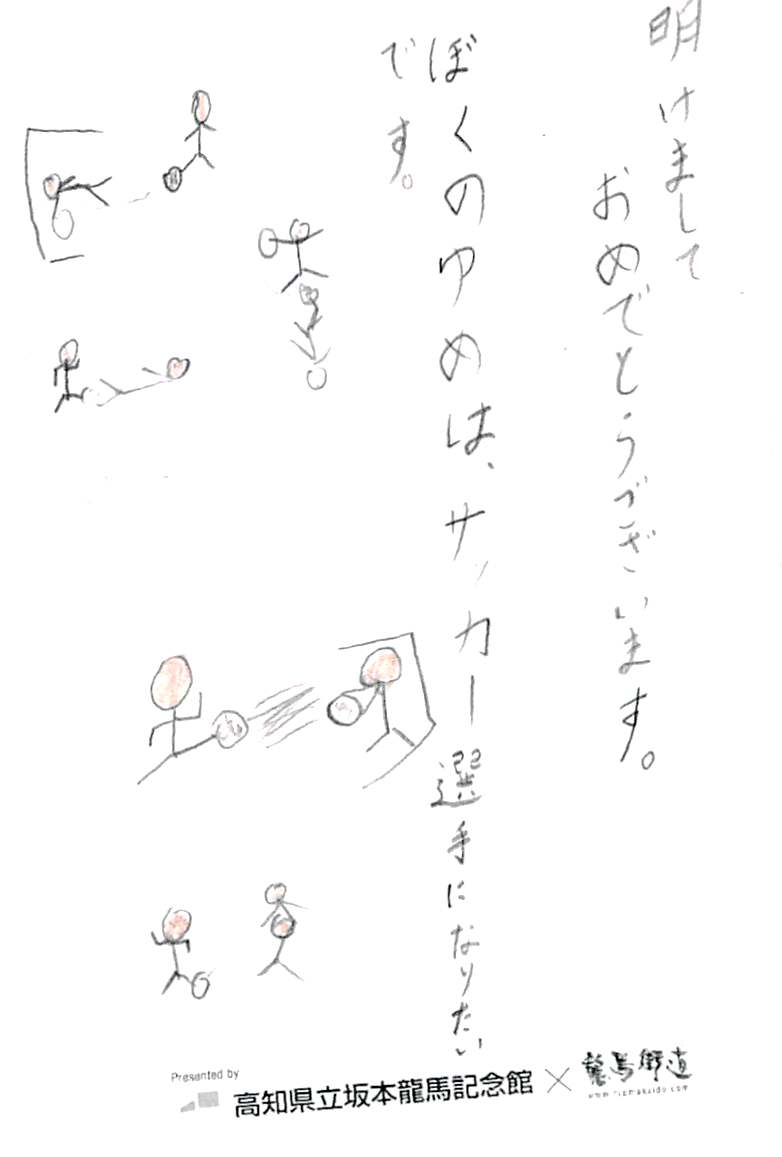 明けまして
おめでとうございます。
ぼくのゆめは、サッカー選手になりたい
です。
Presented by
高知県立坂本龍馬記念館×龍馬街道
www.ryomakaido.com